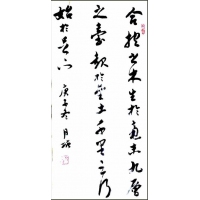 合抱之木生於毫末九層
之臺起於壘土千里之行
始於足下 庚子冬月